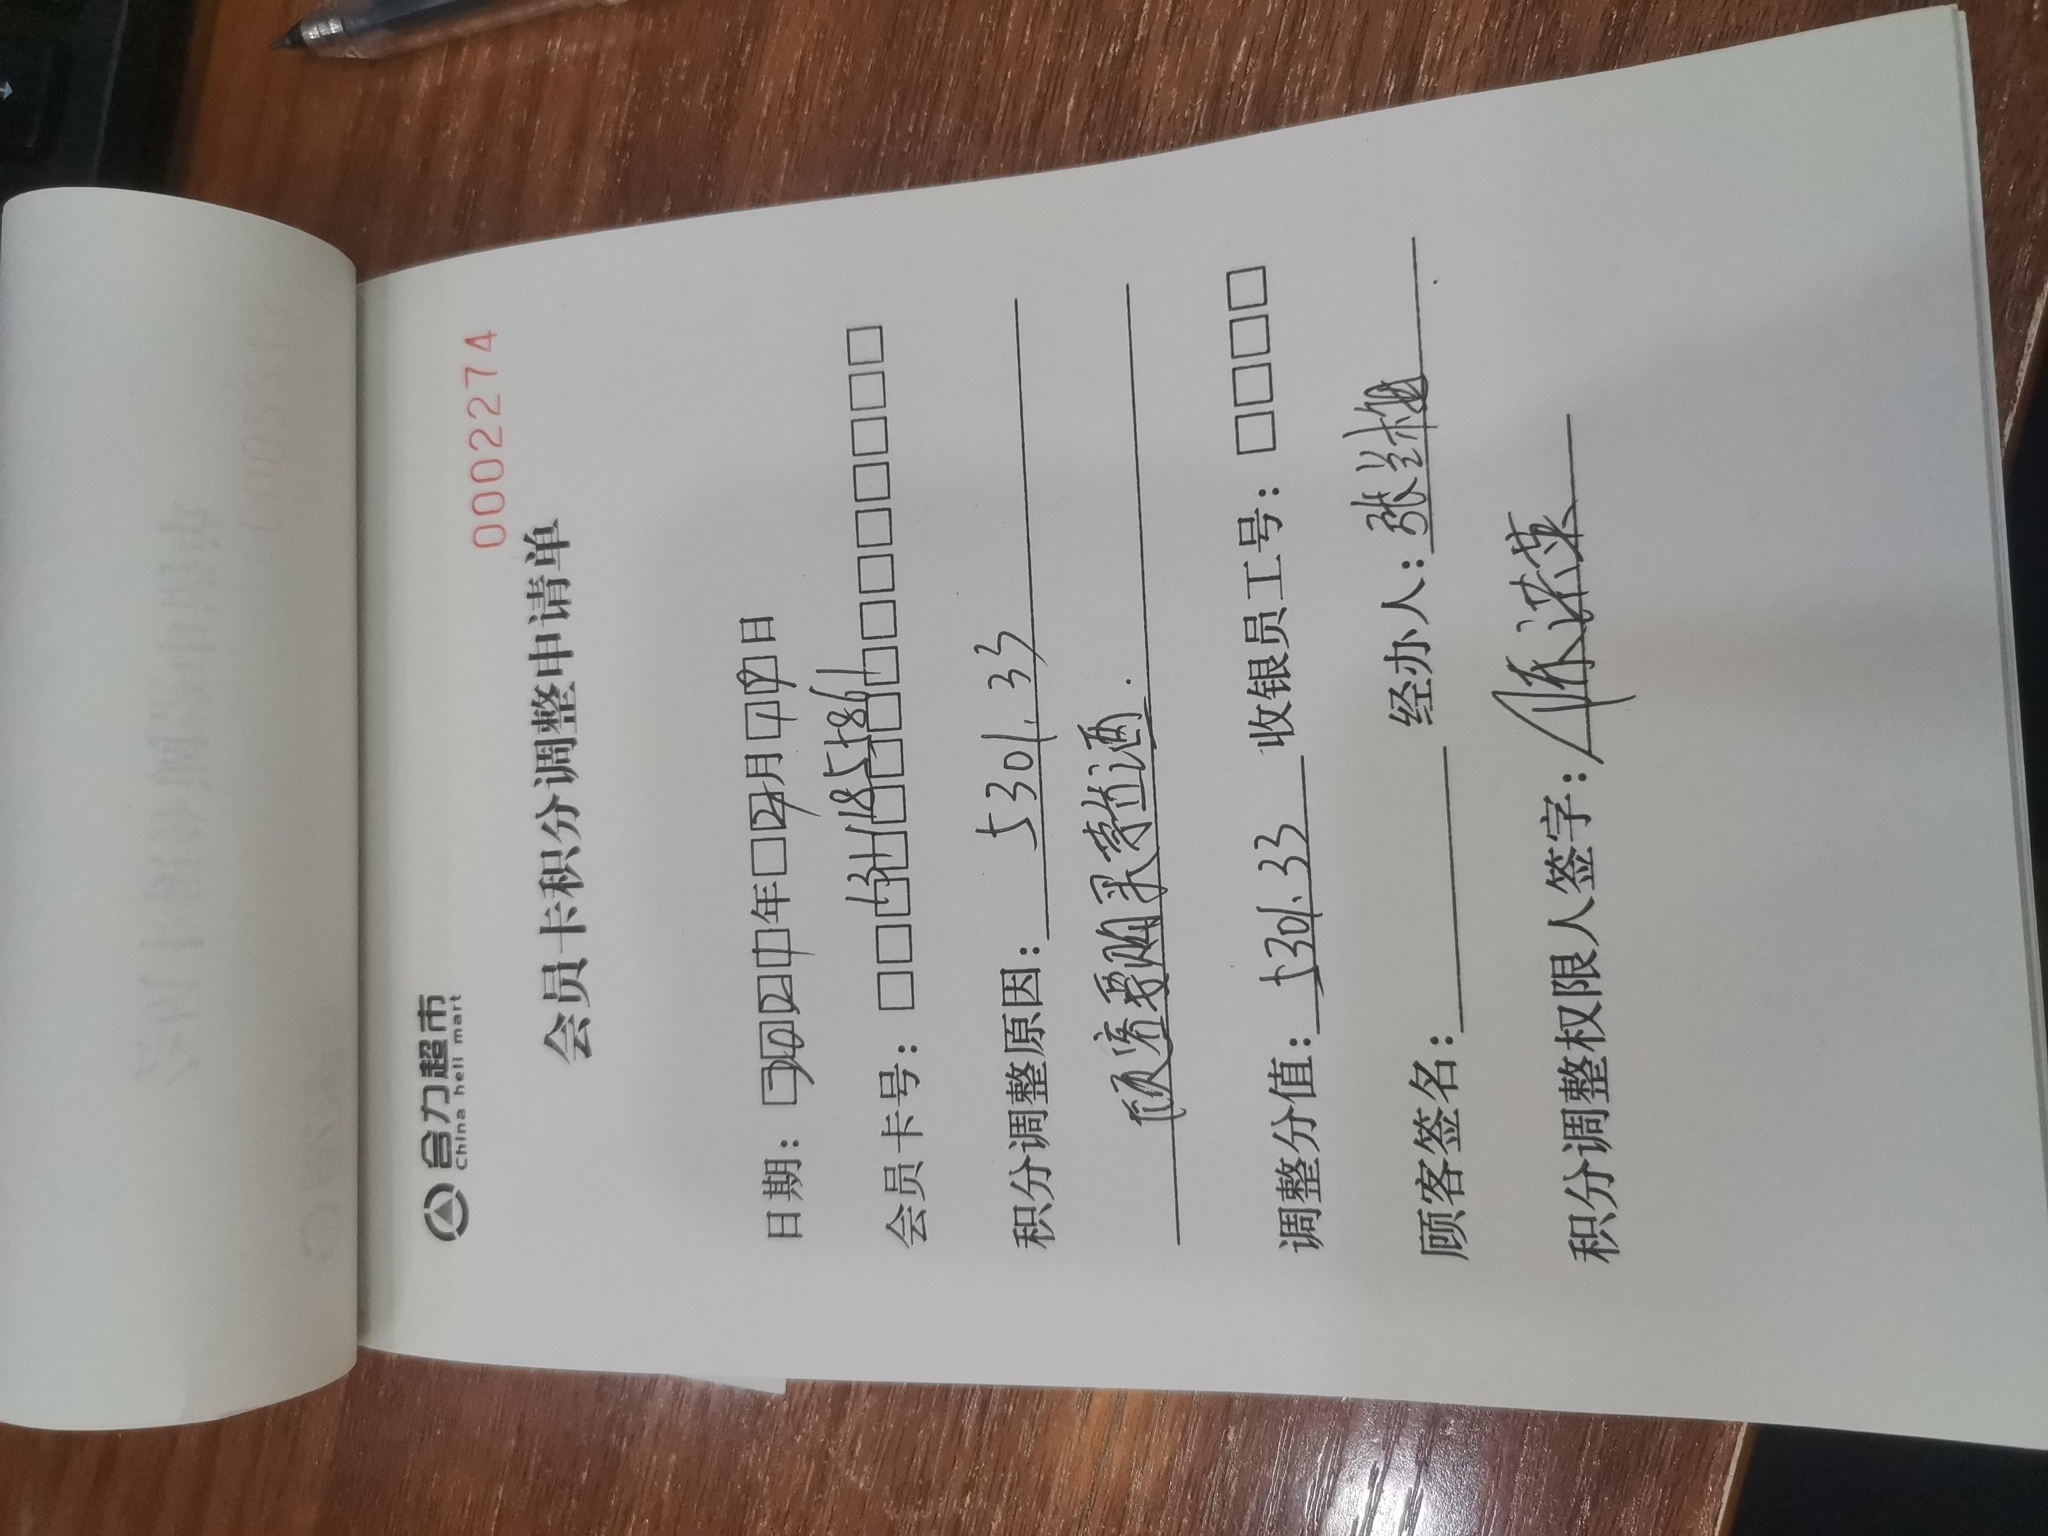 合力超市
China hell mart
0002274
会员卡积分调整申请单
日期：2021年2月19日
会员卡号：13118557861
积分调整原因：5301.33
顾客要购买茅台酒.
调整分值：5301.33 收银员工号：
顾客签名： 经办人：张兰梅
积分调整权限人签字：